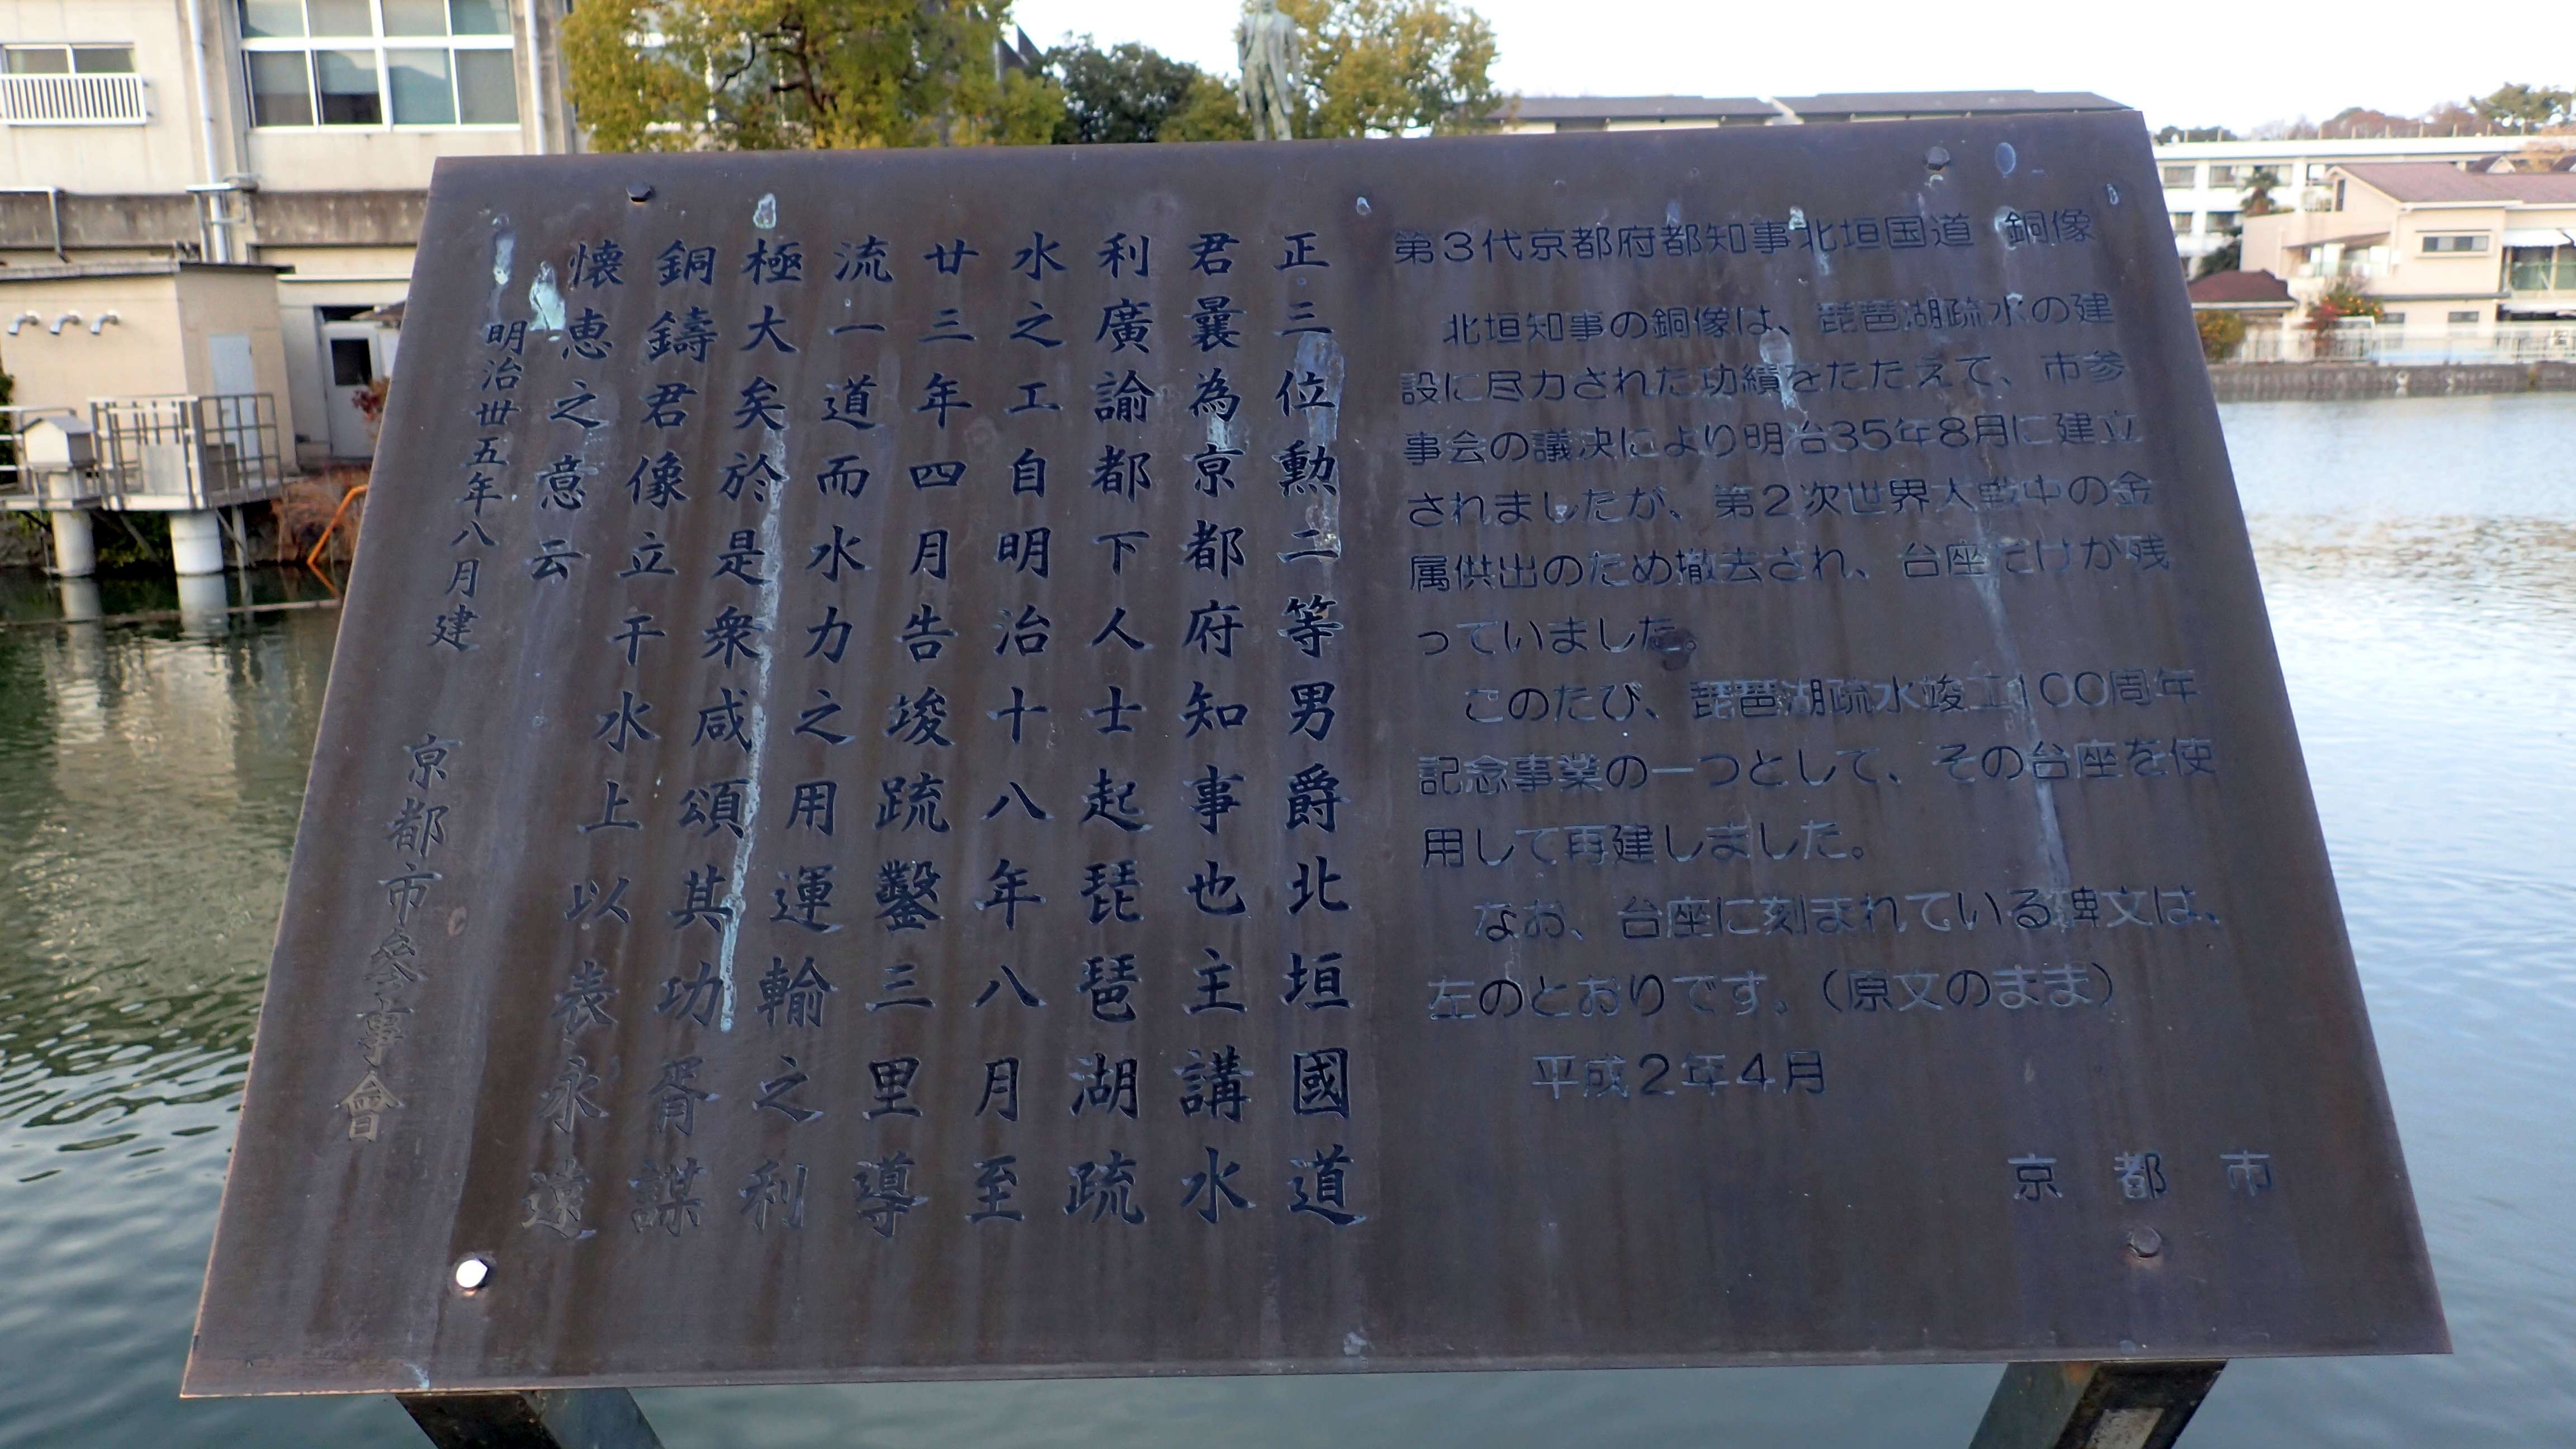 第3代京都府都知事北垣国道 銅像
北垣知事の銅像は、琵琶湖疏水の建
設に尽力された功績をたたえて、市参
事会の議決により明治35年8月に建立
されましたが、第2次世界大戦中の金
属供出のため撤去され、台座だけが残
っていました。
このたび、琵琶湖疏水竣工100周年
記念事業の一つとして、その台座を使
用して再建しました。
なお、台座に刻まれている碑文は、
左のとおりです。(原文のまま)
平成2年4月
京都市
正三位勲二等男爵北垣國道
君曩為京都府知事也主講水
利廣諭都下人士起琵琶湖疏
水之工自明治十八年八月至
廿三年四月告竣疏鑿三里導
流一道而水力之用運輸之利
極大矣於是衆咸頌其功胥謀
銅鑄君像立干水上以表永遠
懐恵之意云
明治丗五年八月建 京都市參事會